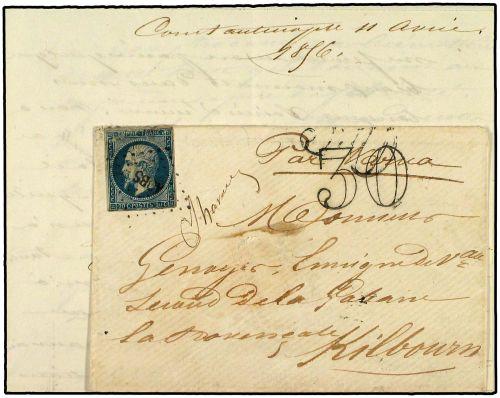 Constantinople 11 Avril
1856.
EMPIRE FRANC
20 CENTIMES 20
30
Par
Monsieur
Enseigne de V
Second de la Gabare
la Provençale
Kilbourn